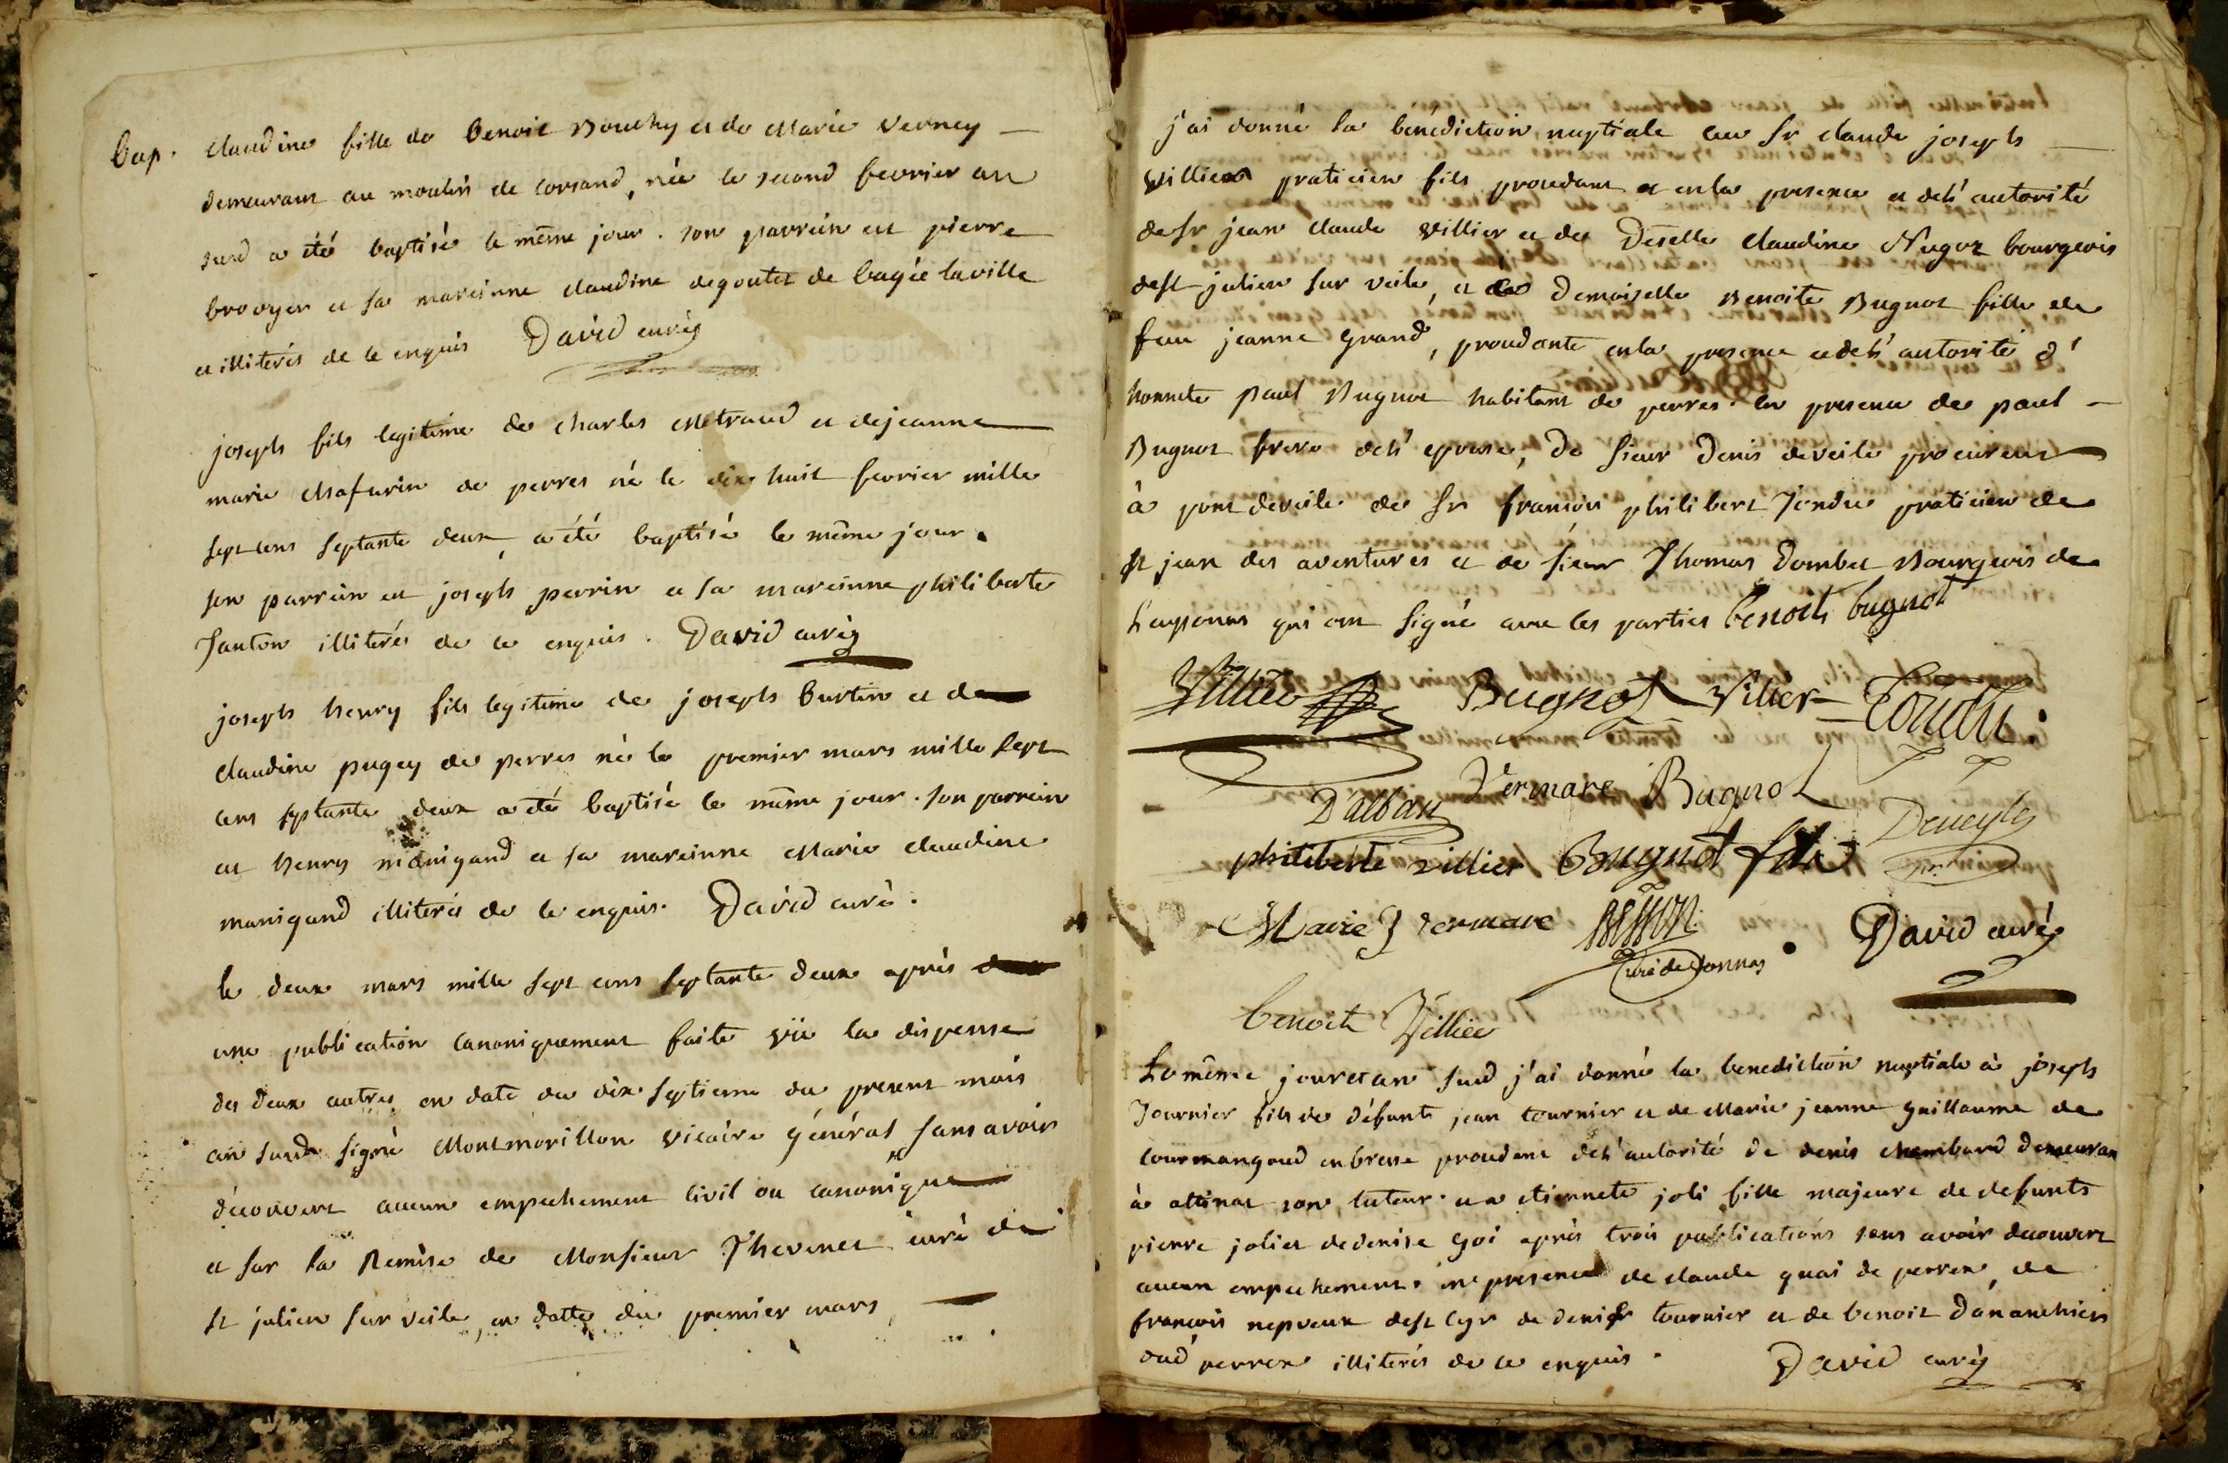 bap. claudine fille de benoit Bouchy et de Marie Verney
demeurant au moulin de corsand, née le second fevrier an
susd a été baptisée le même jour. son parrein est pierre
brooyer et sa mareinne claudine degoutet de bagée laville
et illiterés de ce enquis David curé
joseph fils legitime de charles Metraud et de jeanne
marie Mafurin de perres né le dix huit fevrier mille
sept cens septante deux, a été baptisé le même jour.
son parrein est joseph perrin et sa mareinne philiberte
Janton illiterés de ce enquis. David curé
joseph henry fils legitime de joseph burtin et de
claudine pugey de perres né le premier mars mille sept
cens septante deux a été baptisé le même jour. son parrein
est henry manigand et sa mareinne Marie claudine
manigand illiterés de ce enquis. David curé.
le deux mars mille sept cens septante deux après
une publication canoniquement faite vüe la dispense
des deux autres en date du dix septieme du present mois
an susd signé Montmorillon vicaire général sans avoir
découvert aucun empechement civil ou canonique
et sur la Remise de Monsieur Thevenet curé de
st julien sur veile, en datte du premier mars
j'ai donné la bénédiction nuptiale au sr claude joseph
villier praticien fils procedant et en la presence et de l'autorité
de sr jean claude villier et de Deselle claudine Nugoz bourgeois
de st julien sur veile, et de Demoiselle Benoite Bugnot fille de
feue jeanne grand, procedante en la presence et de l'autorité d'
honnete paul Bugnot habitant de perres. en presence de paul
Bugnot frere de l'epouse, de sieur Denis deveile procureur
à pont de veile de sr françois philibert Tondu praticien de
st jean des aventures et de sieur Thomas Dombet Bourgeois de
qui ont signé avec les parties benoite bugnot
Villier Bugnot Vilier Tondu
Dalban Vermare Bugnot Deveyle
philiberte villier Bugnot fils
Marie J vermare curé de David curé
benoite Villier
Le même jour et an susd j'ai donné la benediction nuptiale à joseph
Tournier fils de défunt jean tournier et de Marie jeanne guillaume de
courmangoud en bresse procedant de l'autorité de denis chambard demeurant
à attinat son tuteur. et a etiennete joli fille majeure de defunts
pierre joli et de denise goi après trois publications sans avoir decouvert
aucun empechement. en presence de claude guai de perrex, de
françois nepveux de st cyr de denis tournier et de benoit Dananchier
dud perrex illiterés de ce enquis. David curé